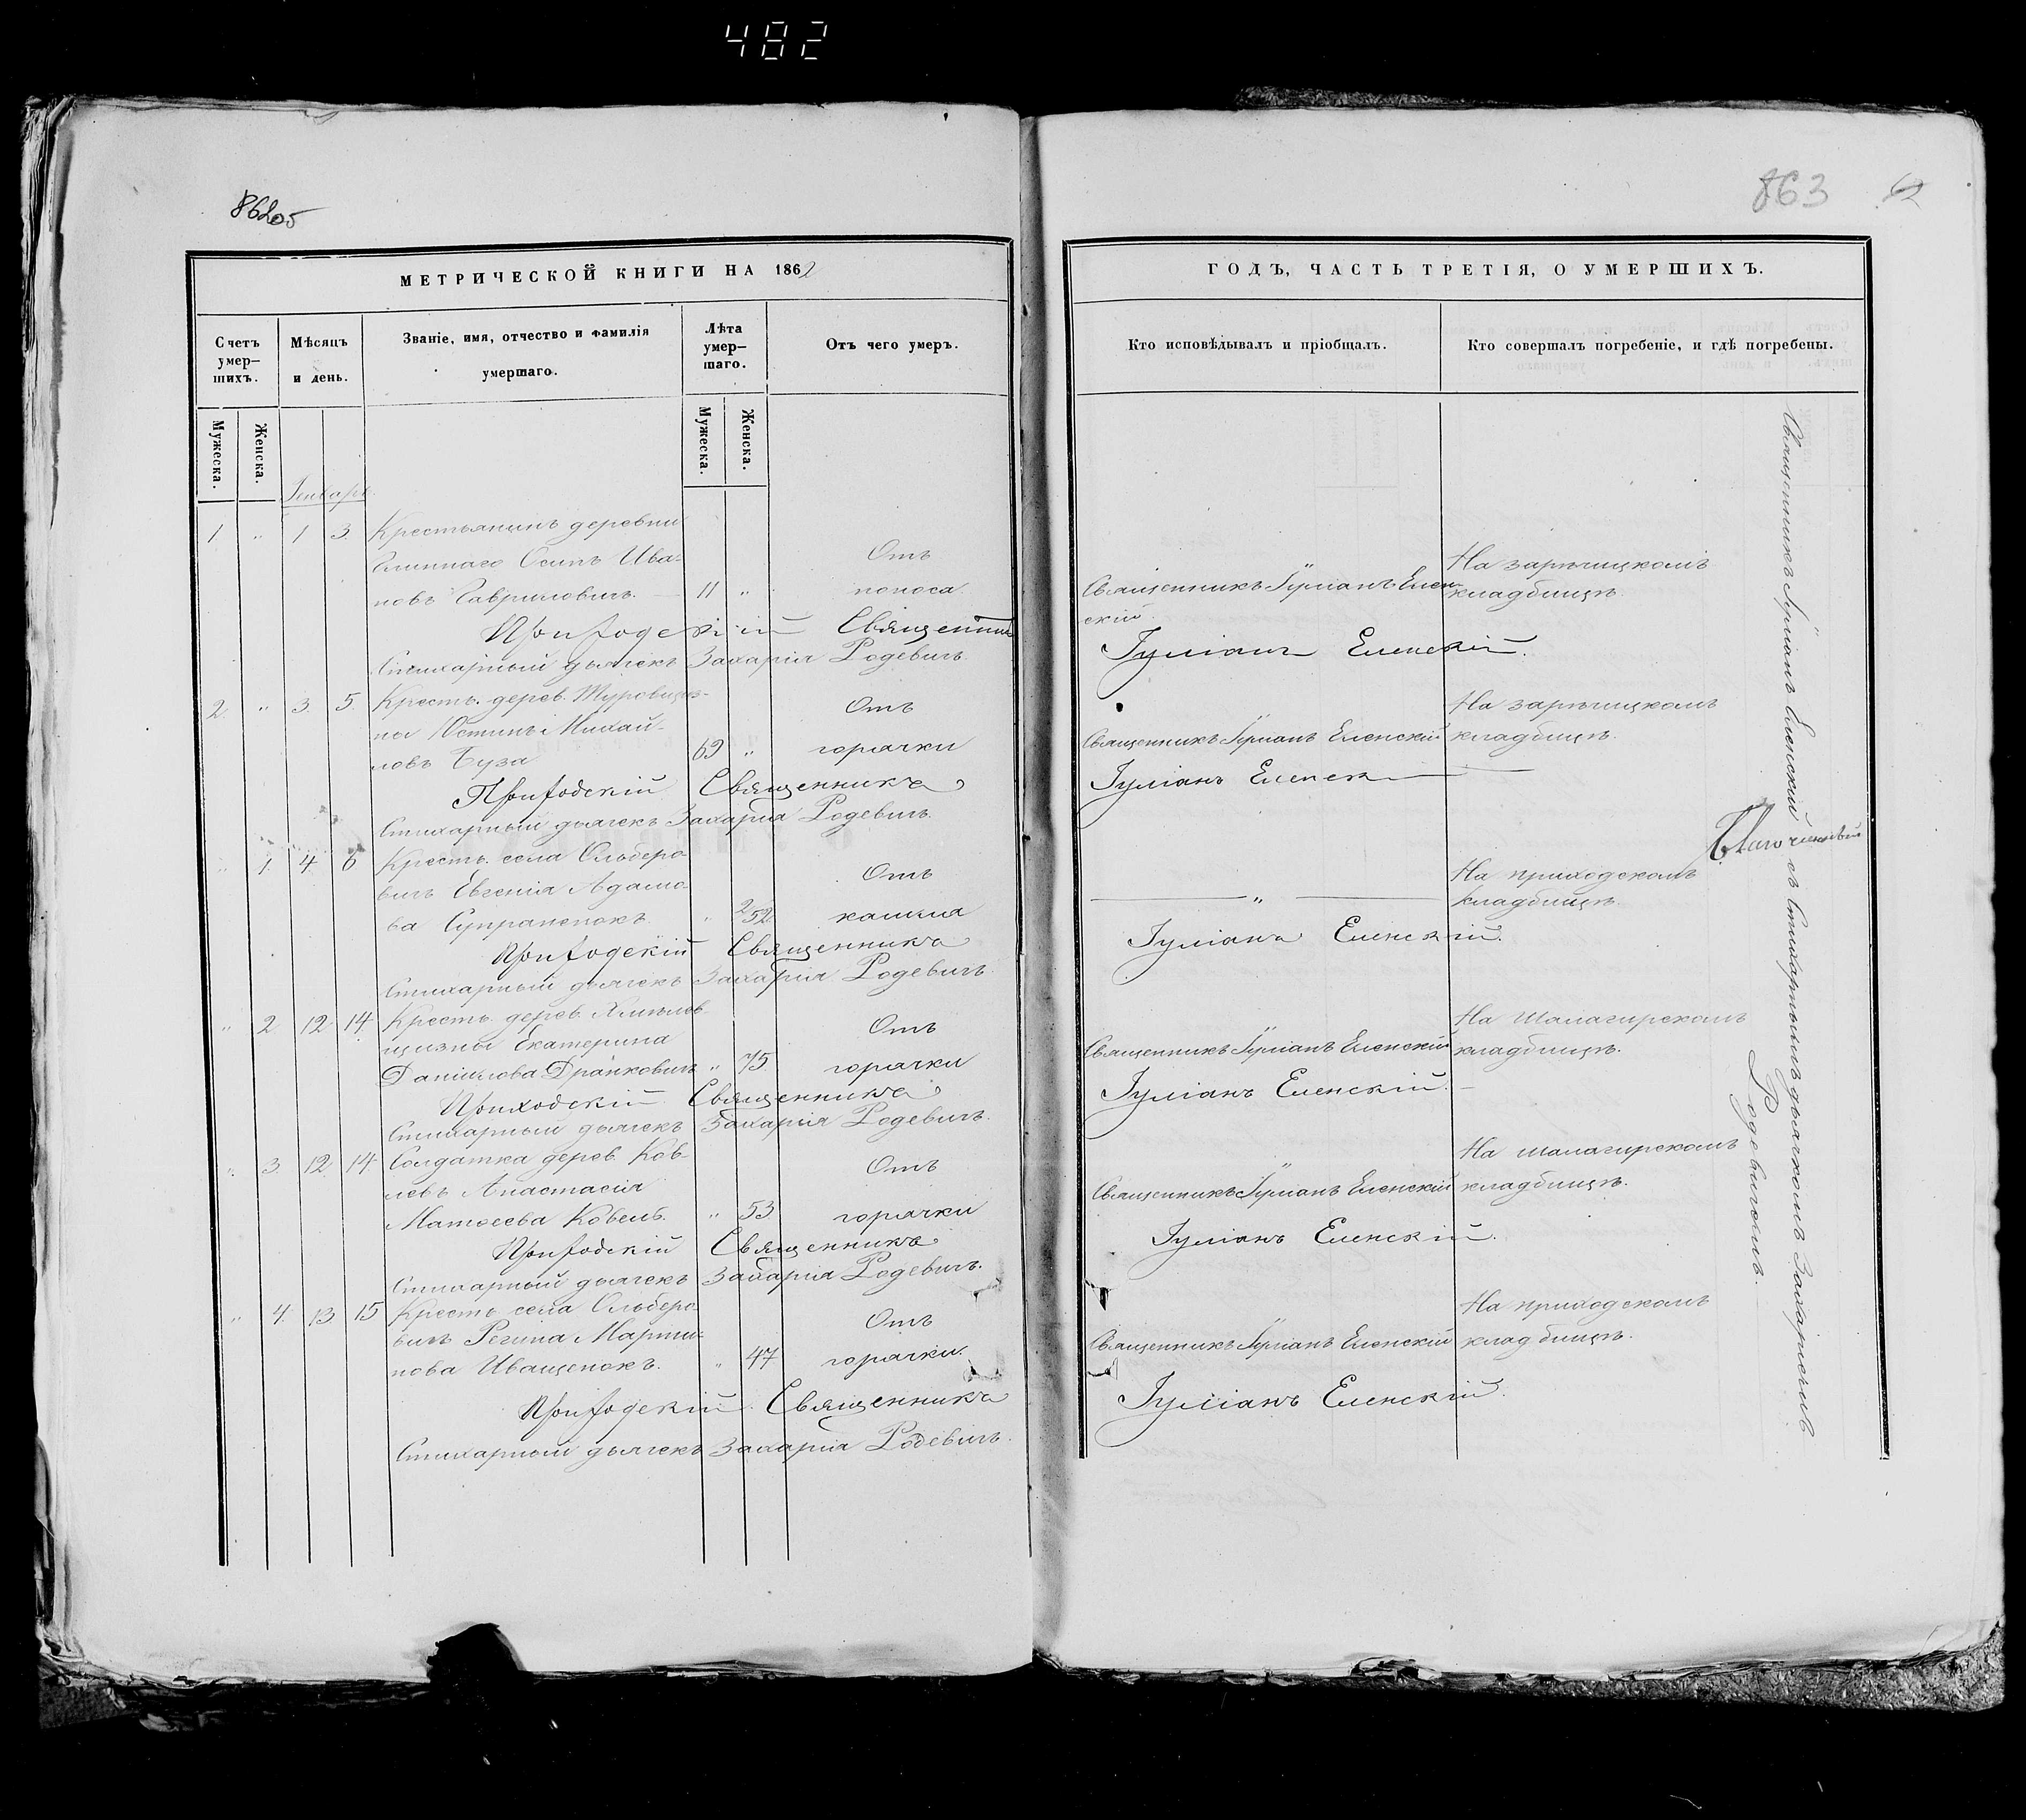 482
863
МЕТРИЧЕСКОЙ КНИГИ НА 1862
ГОДЪ, ЧАСТЬ ТРЕТІЯ, О УМЕРШИХЪ.
Счетъ умер—шихъ.
Мѣсяцъ и день.
Званіе, имя, отчество и фамилія умершаго.
Лѣта умер—шаго.
Отъ чего умеръ.
Кто исповѣдывалъ и пріобщалъ.
Кто совершалъ погребеніе, и гдѣ погребены.
Мужеска.
Женска.
Мужеска.
Женска.
Генварь
1 „ 1 3. Крестьянинъ деревни
Осипъ Ива-
новъ Гавриловичъ. — 11 „
Отъ
поноса
Священникъ Іуліанъ Елен-
скій.
На зарѣчицкомъ
кладбищѣ.
Приходскій Священникъ Іуліанъ Еленскій.
Стихарный дьячекъ Захарія Родевичъ.
2. „ 3. 5. Кресть. дерев. Туровщиз-
ны Юстинъ Михай-
ловъ Буза 69 „
Отъ
горячки
Священникъ Іуліанъ Еленскій
На зарѣчицкомъ
кладбищѣ.
Приходскій Священникъ Іуліанъ Еленск
Стихарный дьячекъ Захарія Родевичъ.
„ 1. 4. 6 Кресть. села Ольберо-
вичъ Евгенія Адамо-
ва Супраненокъ. „ 2/52
Отъ
кашля
„
На приходскомъ
кладбищѣ.
Приходскій Священникъ Іуліанъ Еленскій.
Стихарный дьячекъ Захарія Родевичъ.
„ 2 12 14. Кресть. дерев. Хмѣлев-
щизны Екатерина
Даніилова Дранковичъ „ 75
Отъ
горячки
Священникъ Іуліанъ Еленскій
На Шалагирскомъ
кладбищѣ.
Приходскій Священникъ Іуліанъ Еленскій.
Стихарный дьячекъ Захарія Родевичъ.
„ 3. 12 14 Солдатка дерев. Ков-
левъ Анастасія
Матѳеева Ковель. „ 53
Отъ
горячки
Священникъ Іуліанъ Еленскій
На шалагирскомъ
кладбищѣ.
Приходскій Священникъ Іуліанъ Еленскій.
Стихарный дьячекъ Захарія Родевичъ.
„ 4. 13 15 Кресть. села Ольберо-
вичъ Регина Марти-
нова Иващенокъ. „ 47
Отъ
горячки.
Священникъ Іуліанъ Еленскій
На приходскомъ
кладбищѣ.
Приходскій Священникъ Іуліанъ Еленскій.
Стихарный дьячекъ Захарія Родевичъ.
Священникъ Іуліанъ Еленскій съ Стихарнымъ дьячкомъ Захаріемъ
Родевичемъ.